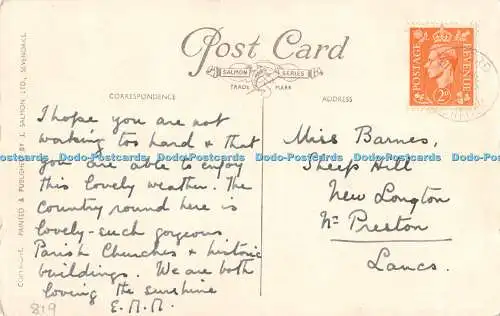 Post Card
SALMON SERIES
TRADE MARK
CORRESPONDENCE
ADDRESS
COPYRIGHT. PRINTED & PUBLISHED BY J. SALMON LTD., SEVENOAKS.
POSTAGE REVENUE
2D
I hope you are not
working too hard & that
you are able to enjoy
this lovely weather. The
country round here is
lovely - such gorgeous
Parish Churches & historic
buildings. We are both
loving the sunshine
E.M.M.
819
Miss Barnes,
Sheep Hill
New Longton
Nr Preston
Lancs.
Postcards Postcards Postcards Postcards Postcards Postcards Postcards